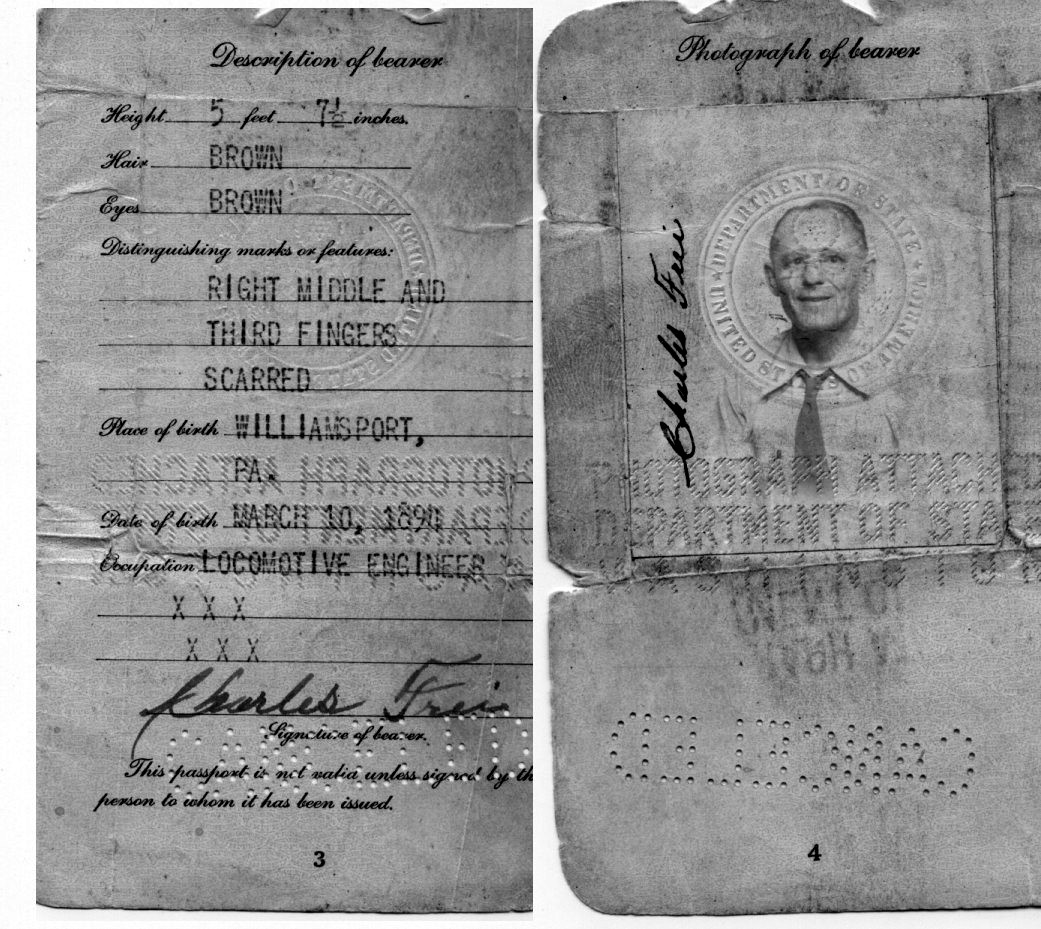 Description of bearer
Height 5 feet 7½ inches.
Hair BROWN
Eyes BROWN
Distinguishing marks or features:
RIGHT MIDDLE AND
THIRD FINGERS
SCARRED
Place of birth WILLIAMSPORT,
PA.
Date of birth MARCH 10, 1894
Occupation LOCOMOTIVE ENGINEER
X X X
X X X
Charles Frei
Signature of bearer.
This passport is not valid unless signed by th
person to whom it has been issued.
3
Photograph of bearer
UNITED STATES OF AMERICA ★ DEPARTMENT OF STATE ★
Charles Frei
PHOTOGRAPH ATTACHED
DEPARTMENT OF STA
CANCELLED
4